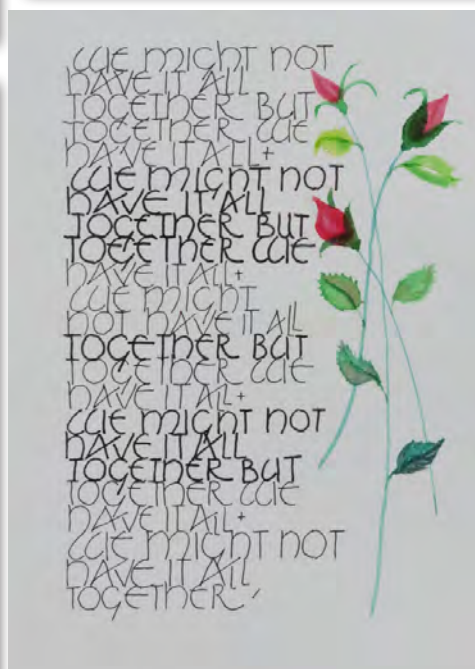 WE MIGHT NOT
HAVE IT ALL
TOGETHER BUT
TOGETHER WE
HAVE IT ALL +
WE MIGHT NOT
HAVE IT ALL
TOGETHER BUT
TOGETHER WE
HAVE IT ALL +
WE MIGHT
NOT HAVE IT ALL
TOGETHER BUT
TOGETHER WE
HAVE IT ALL +
WE MIGHT NOT
HAVE IT ALL
TOGETHER BUT
TOGETHER WE
HAVE IT ALL +
WE MIGHT NOT
HAVE IT ALL
TOGETHER